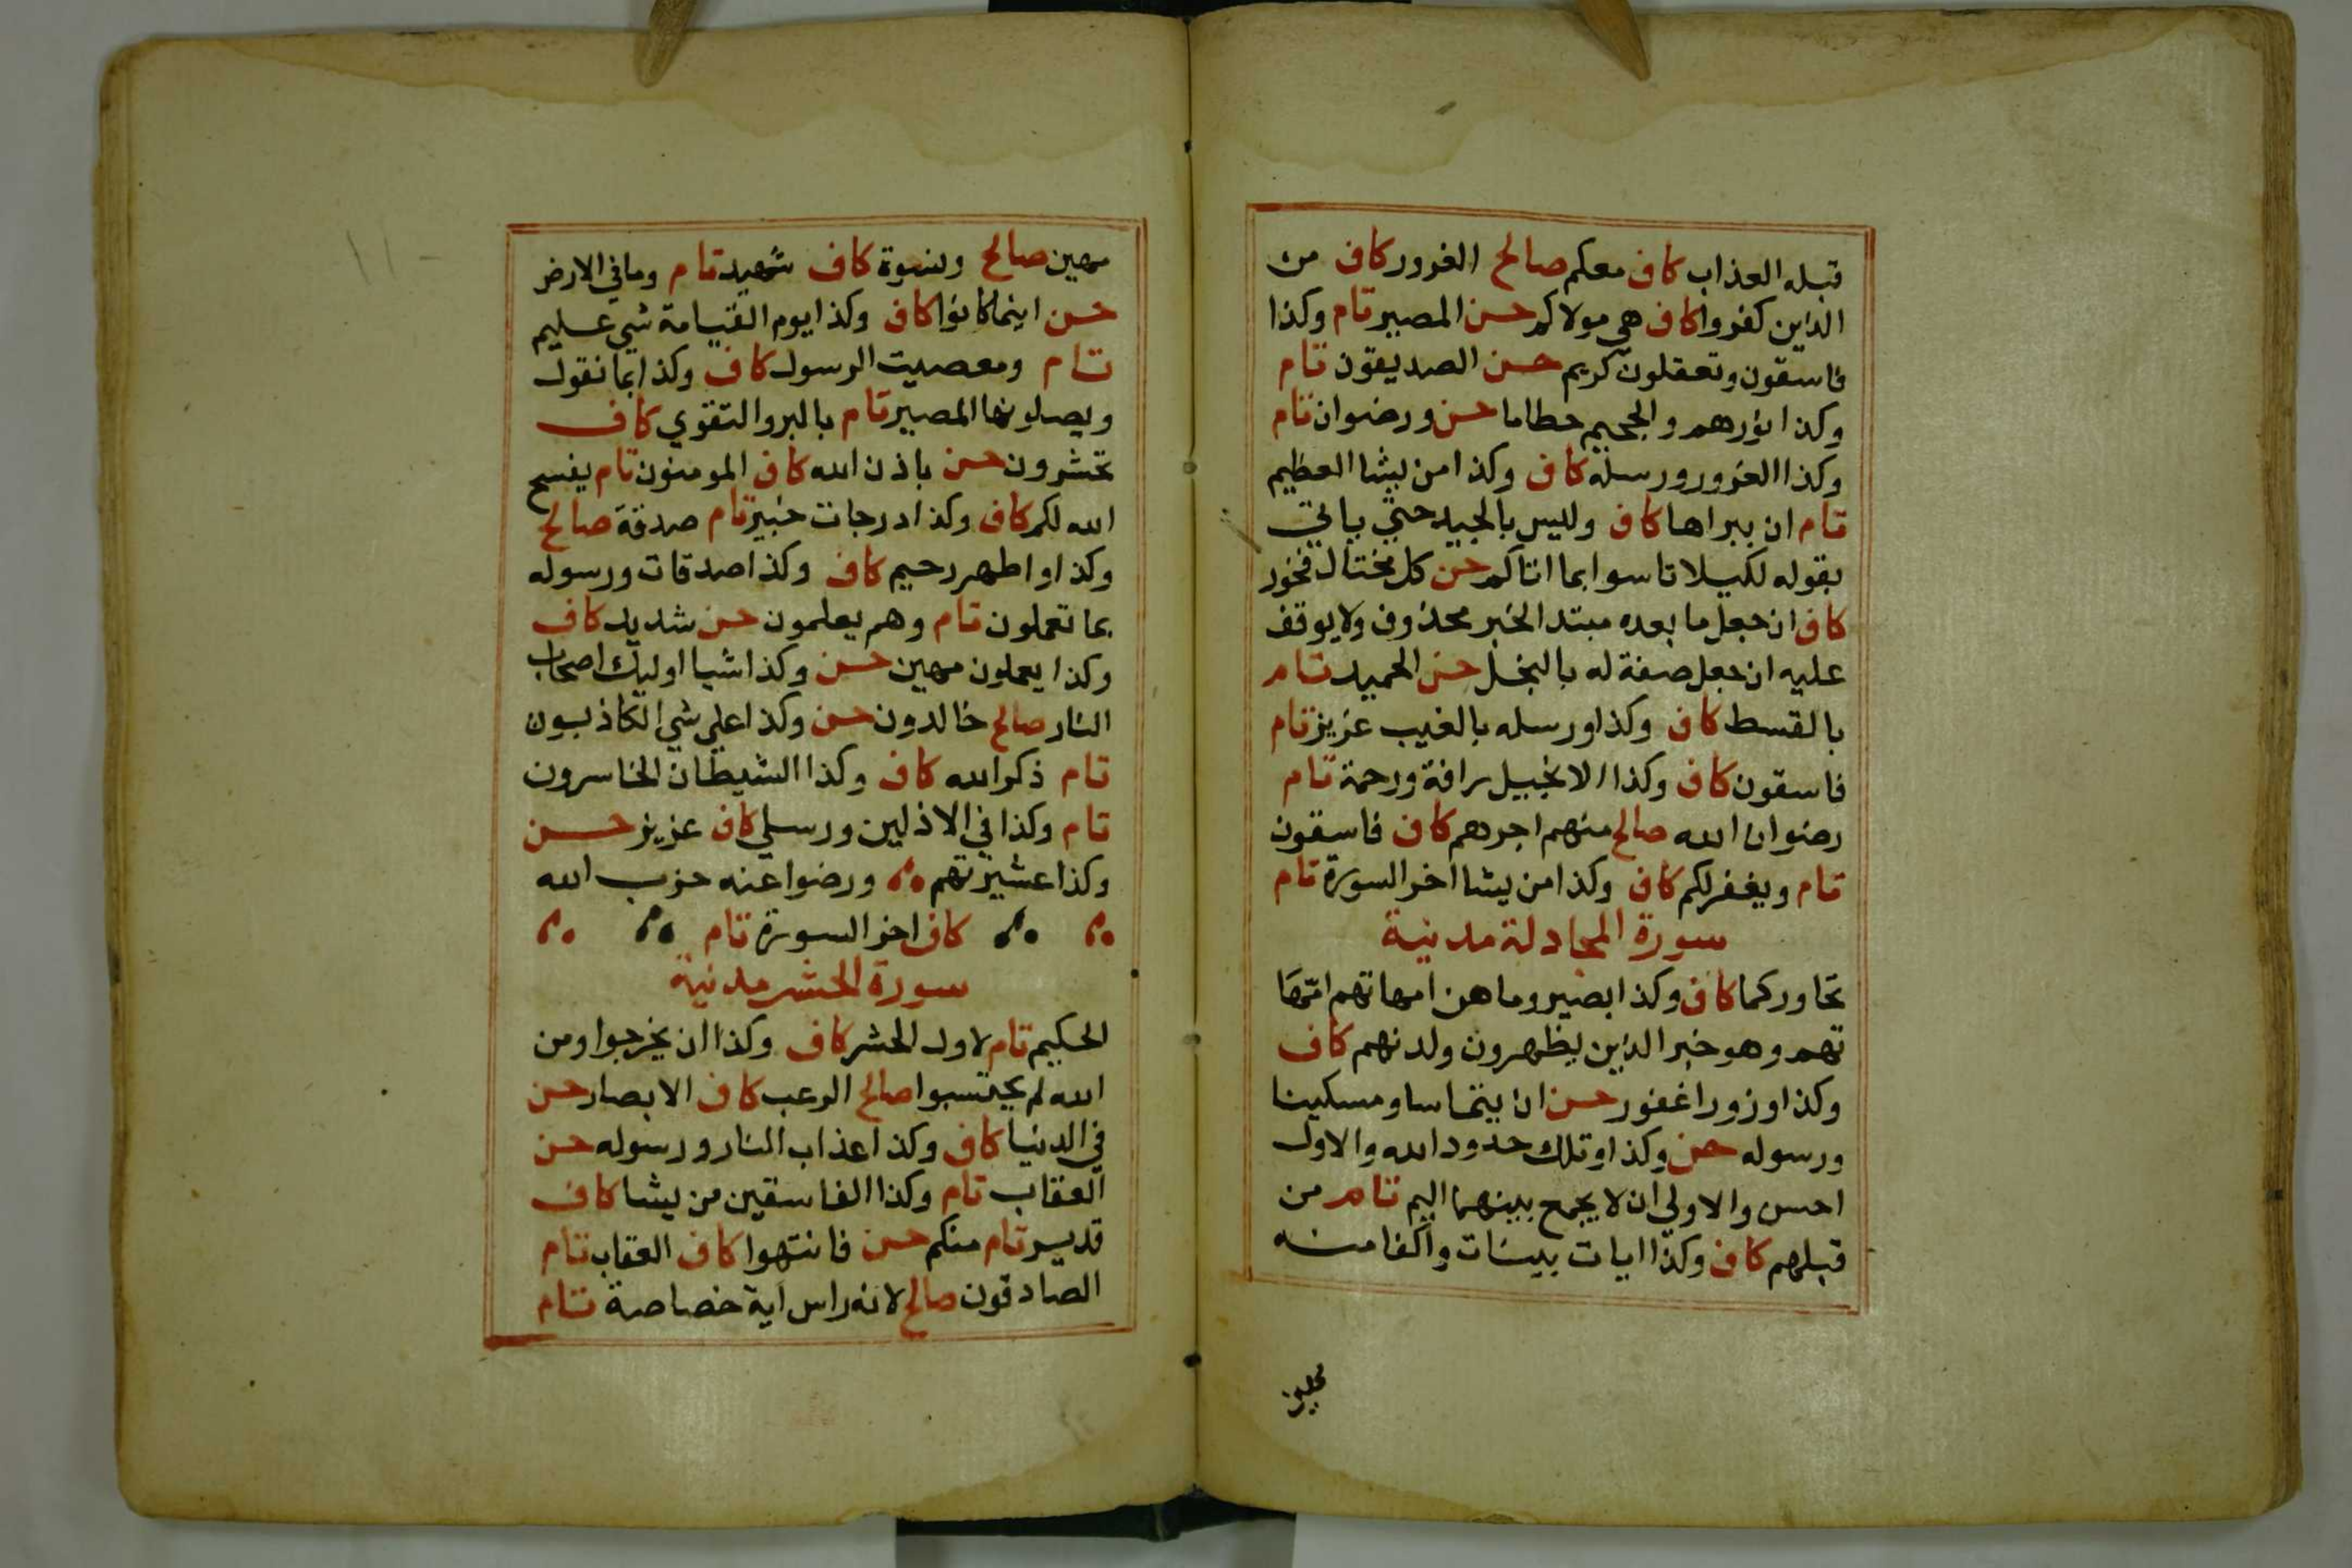 قبله العذاب كاف معكم صالح الغرور كاف من
الذين كفروا كاف هي مولاكم حسن المصير تام وكذا
فاسقون وتعقلون كريم حسن الصديقون تام
وكذا نورهم والجحيم حطاما حسن ورضوان تام
وكذا الغرور ورسله كاف وكذا من يشا العظيم
تام ان نبراها كاف وليس بالجيد حتي ياتي
بقوله لكيلا تاسوا بما اتاكم حسن كل مختال فخور
كاف ان جعل ما بعده مبتدا لخبر محذوف ولا يوقف
عليه ان جعل صفة له بالبخل حسن الحميد تام
بالقسط كاف وكذا ورسله بالغيب عزيز تام
فاسقون كاف وكذا الانجيل رافة ورحمة تام
رضوان الله صالح منهم اجرهم كاف فاسقون
تام ويغفر لكم كاف وكذا من يشا اخر السورة تام
سورة المجادلة مدنية
تحاوركما كاف وكذا بصير وما هن امهاتهم امها
تهم وهو خبر الذين يظهرون ولدنهم كاف
وكذا وزورا غفور حسن ان يتماسا ومسكينا
ورسوله حسن وكذا وتلك حدود الله والاول
احسن والاولي ان لا يجمع بينهما اليم تام من
قبلهم كاف وكذا ايات بينات واكفا منه
مهين صالح ونسوة كاف شهيد تام وما في الارض
حسن اينما كانوا كاف وكذا يوم القيامة شي عليم
تام ومعصيت الرسول كاف وكذا بما نقول
ويصلونها المصير تام بالبر والتقوي كاف
تحشرون حسن باذن الله كاف المومنون تام يفسح
الله لكم كاف وكذا درجات خبير تام صدقة صالح
وكذا واطهر رحيم كاف وكذا صدقات ورسوله
بما تعملون تام وهم يعلمون حسن شديد كاف
وكذا يعملون مهين حسن وكذا شيا اوليك اصحاب
النار صالح خالدون حسن وكذا علي شي الكاذبون
تام ذكر الله كاف وكذا الشيطان الخاسرون
تام وكذا في الاذلين ورسلي كاف عزيز حسن
وكذا عشيرتهم ورضوا عنه حزب الله
كاف اخر السورة تام
سورة الحشر مدنية
الحكيم تام لاول الحشر كاف وكذا ان يخرجوا ومن
الله لم يحتسبوا صالح الرعب كاف الابصار حسن
في الدنيا كاف وكذا عذاب النار ورسوله حسن
العقاب تام وكذا الفاسقين من يشا كاف
قدير تام منكم حسن فانتهوا كاف العقاب تام
الصادقون صالح لانه راس آية خصاصة تام